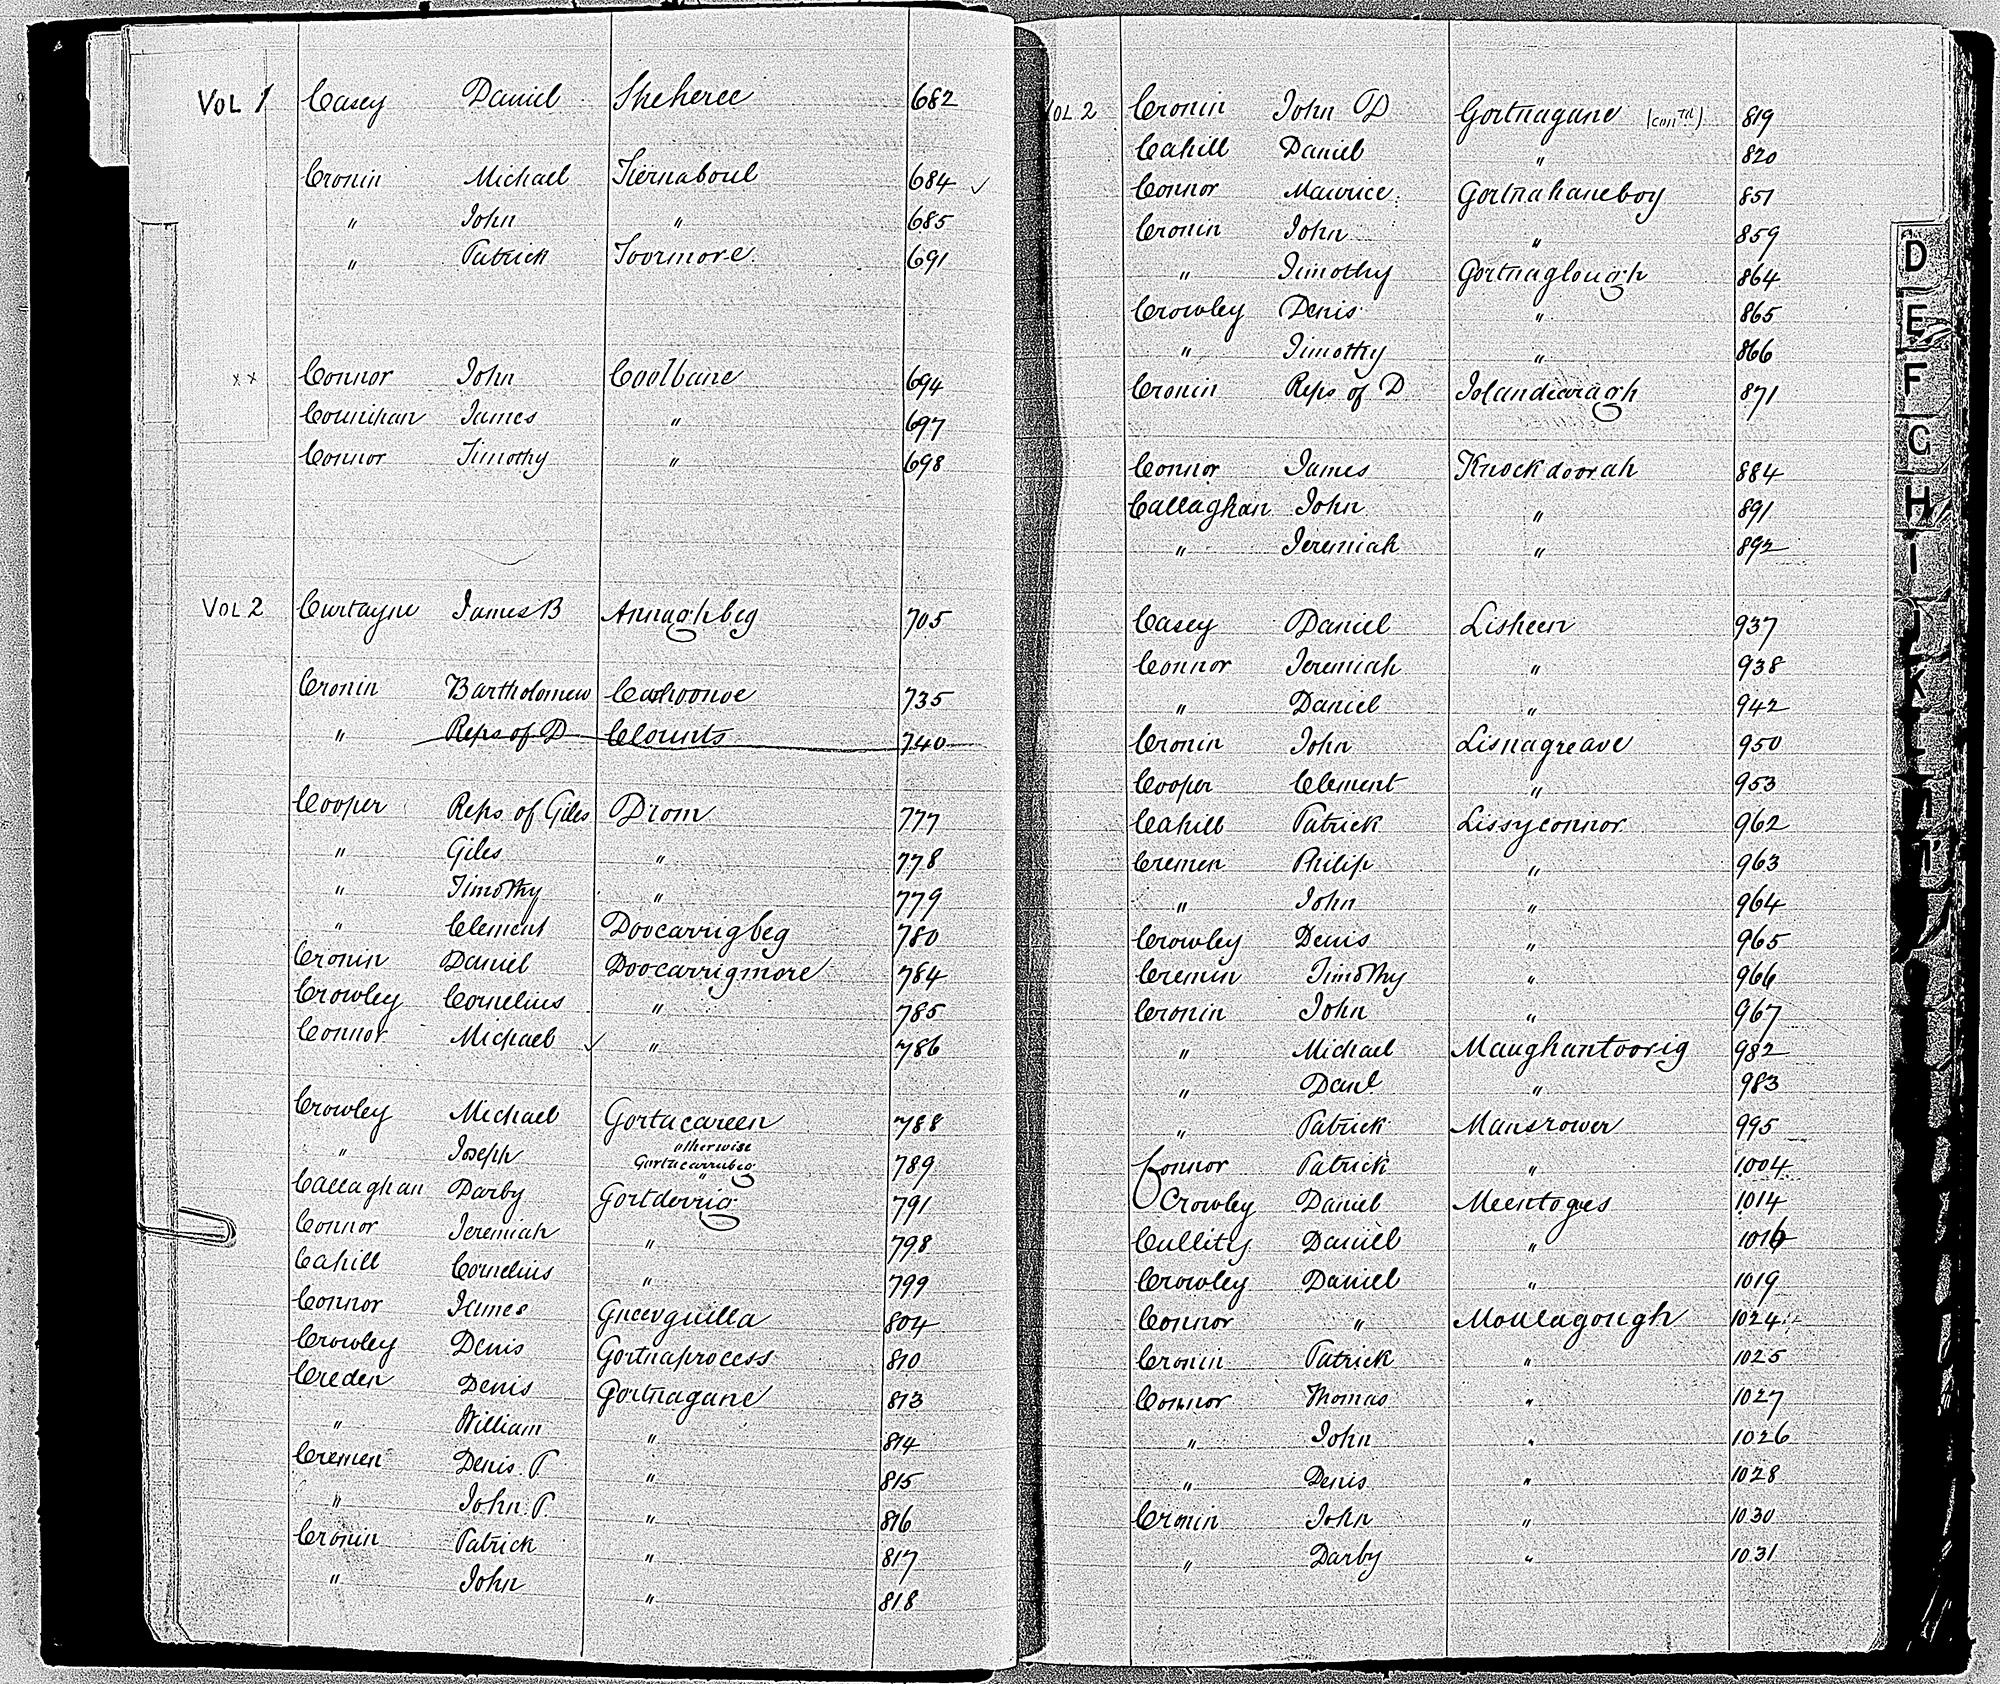 VOL 1 Casey Daniel Sheheree 682
Cronin Michael Tiernaboul 684 ✓
" John " 685
" Patrick Toormore 691
x x Connor John Coolbane 694
Counihan James " 697
Connor Timothy " 698
VOL 2 Curtayne James B Annaghbeg 705
Cronin Bartholomew Cashoonoe 735
" Reps of D Clounts 740
Cooper Reps of Giles Drom 777
" Giles " 778
" Timothy " 779
" Clement Doocarrigbeg 780
Cronin Daniel Doocarrigmore 784
Crowley Cornelius " 785
Connor Michael ✓ " 786
Crowley Michael Gortacareen 788
otherwise
" Joseph Gortacarrubeg 789
Callaghan Darby Gortderrig 791
Connor Jeremiah " 798
Cahill Cornelius " 799
Connor James Gneevguilla 804
Crowley Denis Gortnaprocess 810
Creden Denis Gortnagane 813
" William " 814
Cremen Denis P. " 815
" John P. " 816
Cronin Patrick " 817
" John " 818
VOL 2 Cronin John D Gortnagane (contd) 819
Cahill Daniel " 820
Connor Maurice Gortnahaneboy 851
Cronin John " 859
" Timothy Gortnaglough 864
Crowley Denis " 865
" Timothy " 866
Cronin Reps of D Islandearagh 871
Connor James Knockdoorah 884
Callaghan John " 891
" Jeremiah " 892
Casey Daniel Lisheen 937
Connor Jeremiah " 938
" Daniel " 942
Cronin John Lisnagreave 950
Cooper Clement " 953
Cahill Patrick Lissyconnor 962
Cremen Philip " 963
" John " 964
Crowley Denis " 965
Cremin Timothy " 966
Cronin John " 967
" Michael Maughantoorig 982
" Danl " 983
" Patrick Mausrower 995
Connor Patrick " 1004
Crowley Daniel Meentogues 1014
Cullity Daniel " 1016
Crowley Daniel " 1019
Connor " Moulagough 1024
Cronin Patrick " 1025
Connor Thomas " 1027
" John " 1026
" Denis " 1028
Cronin John " 1030
" Darby " 1031
D
E
F
G
H
I
J
K
L
M